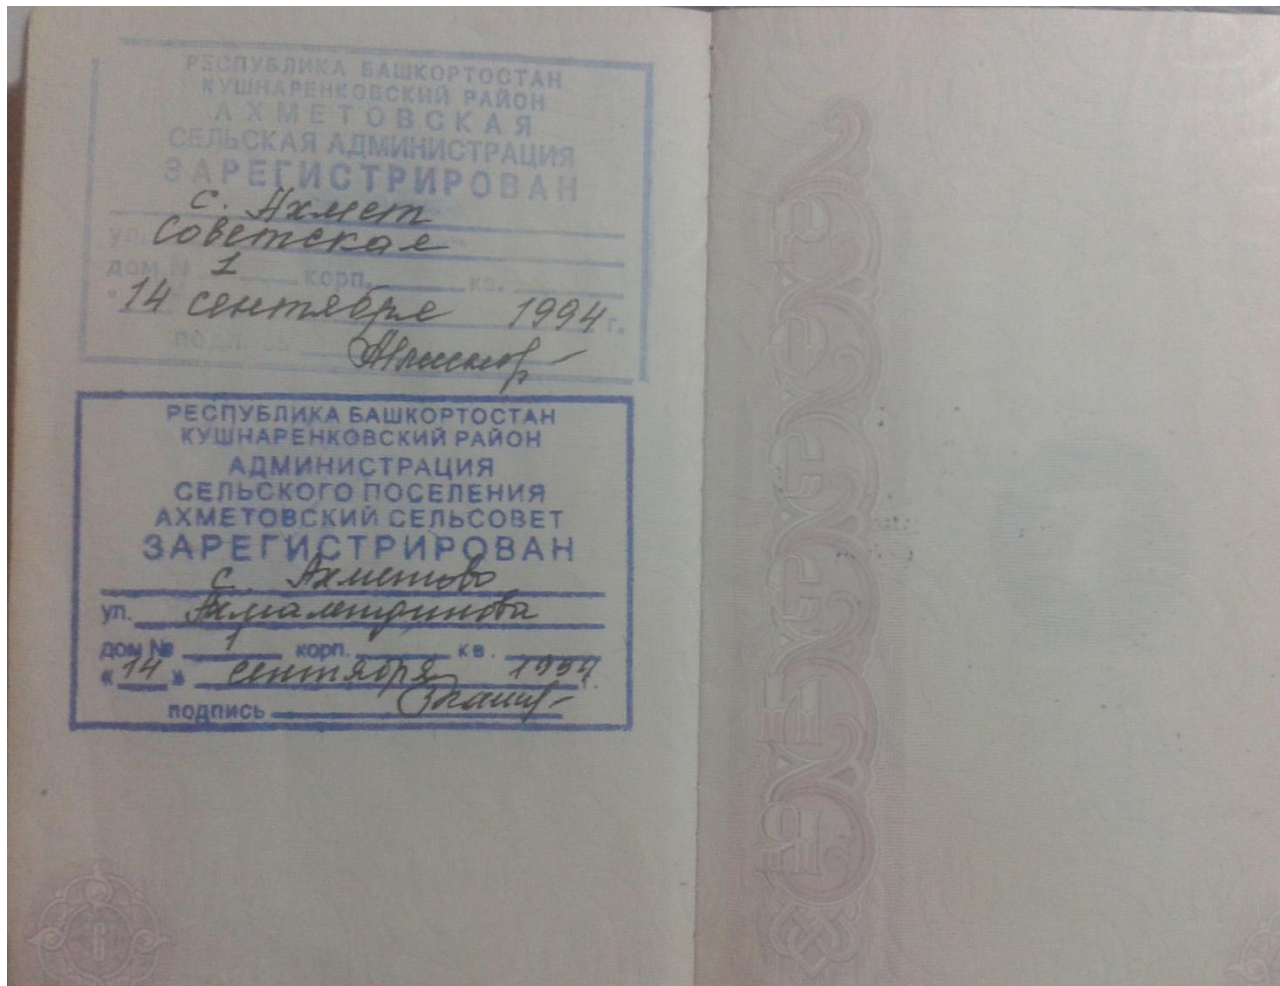 РЕСПУБЛИКА БАШКОРТОСТАН
КУШНАРЕНКОВСКИЙ РАЙОН
АХМЕТОВСКАЯ
СЕЛЬСКАЯ АДМИНИСТРАЦИЯ
ЗАРЕГИСТРИРОВАН
с. Ахмет
ул. Советская
дом № 1 корп. кв.
"14 сентября 1994 г.
подпись
РЕСПУБЛИКА БАШКОРТОСТАН
КУШНАРЕНКОВСКИЙ РАЙОН
АДМИНИСТРАЦИЯ
СЕЛЬСКОГО ПОСЕЛЕНИЯ
АХМЕТОВСКИЙ СЕЛЬСОВЕТ
ЗАРЕГИСТРИРОВАН
с. Ахметово
ул.
дом № 1 корп. кв.
«14» сентября 1994 г.
подпись